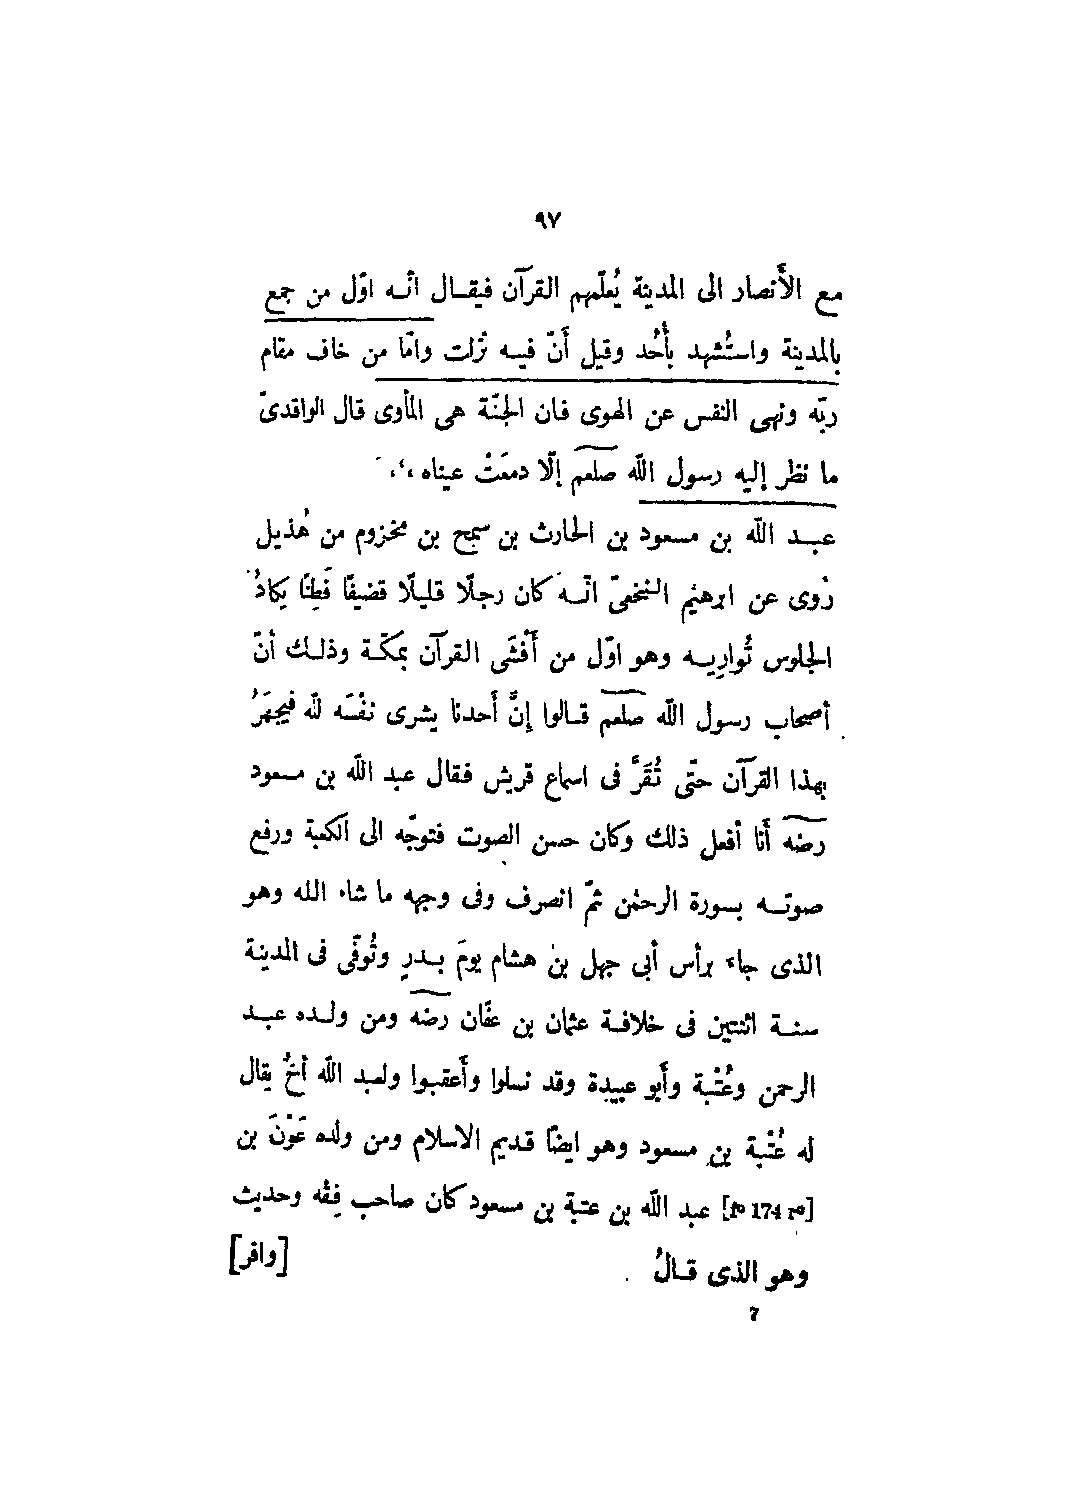 ٩٧
مع الأنصار الى المدينة يُعلّمهم القرآن فيقال انّه اوّل من جمع
بالمدينة واستُشهد بأُحُد وقيل أنّ فيه نزلت وامّا من خاف مقام
ربّه ونهى النفس عن الهوى فان الجنّة هى المأوى قال الواقدىّ
ما نظر إليه رسول اللّه صلعم إلّا دمعَتْ عيناه ،،
عبد اللّه بن مسعود بن الحارث بن سمح بن مخزوم من هُذيل
رُوى عن ابرهيم النخعىّ انّه كان رجلًا قليلًا قضيفًا فَطِنًا يكادُ
الجلوس تُواريه وهو اوّل من أَفْشَى القرآن بمكّة وذلك أنّ
أصحاب رسول اللّه صلعم قالوا إنَّ أَحدنا يشرى نفْسَه للّه فيجهَرُ
بهذا القرآن حتّى تُقَرَّ فى اسماع قريش فقال عبد اللّه بن مسعود
رضَه أَنا أفعل ذلك وكان حسن الصوت فتوجّه الى الكعبة ورفع
صوته بسورة الرحمٰن ثمّ انصرف وفى وجهه ما شاء الله وهو
الذى جاء برأس أبى جهل بن هشام يومَ بدرٍ وتُوفّى فى المدينة
سنة اثنتين فى خلافة عثمان بن عفّان رضَه ومن ولده عبد
الرحمن وعُتْبة وأَبو عبيدة وقد نسلوا وأَعقبوا ولعبد اللّه أخٌ يقال
له عُتْبة بن مسعود وهو ايضًا قديم الاسلام ومن ولده عَوْنَ بن
[fº 174 rº] عبد اللّه بن عتبة بن مسعود كان صاحب فِقْه وحديث
وهو الذى قالُ [وافر]
7